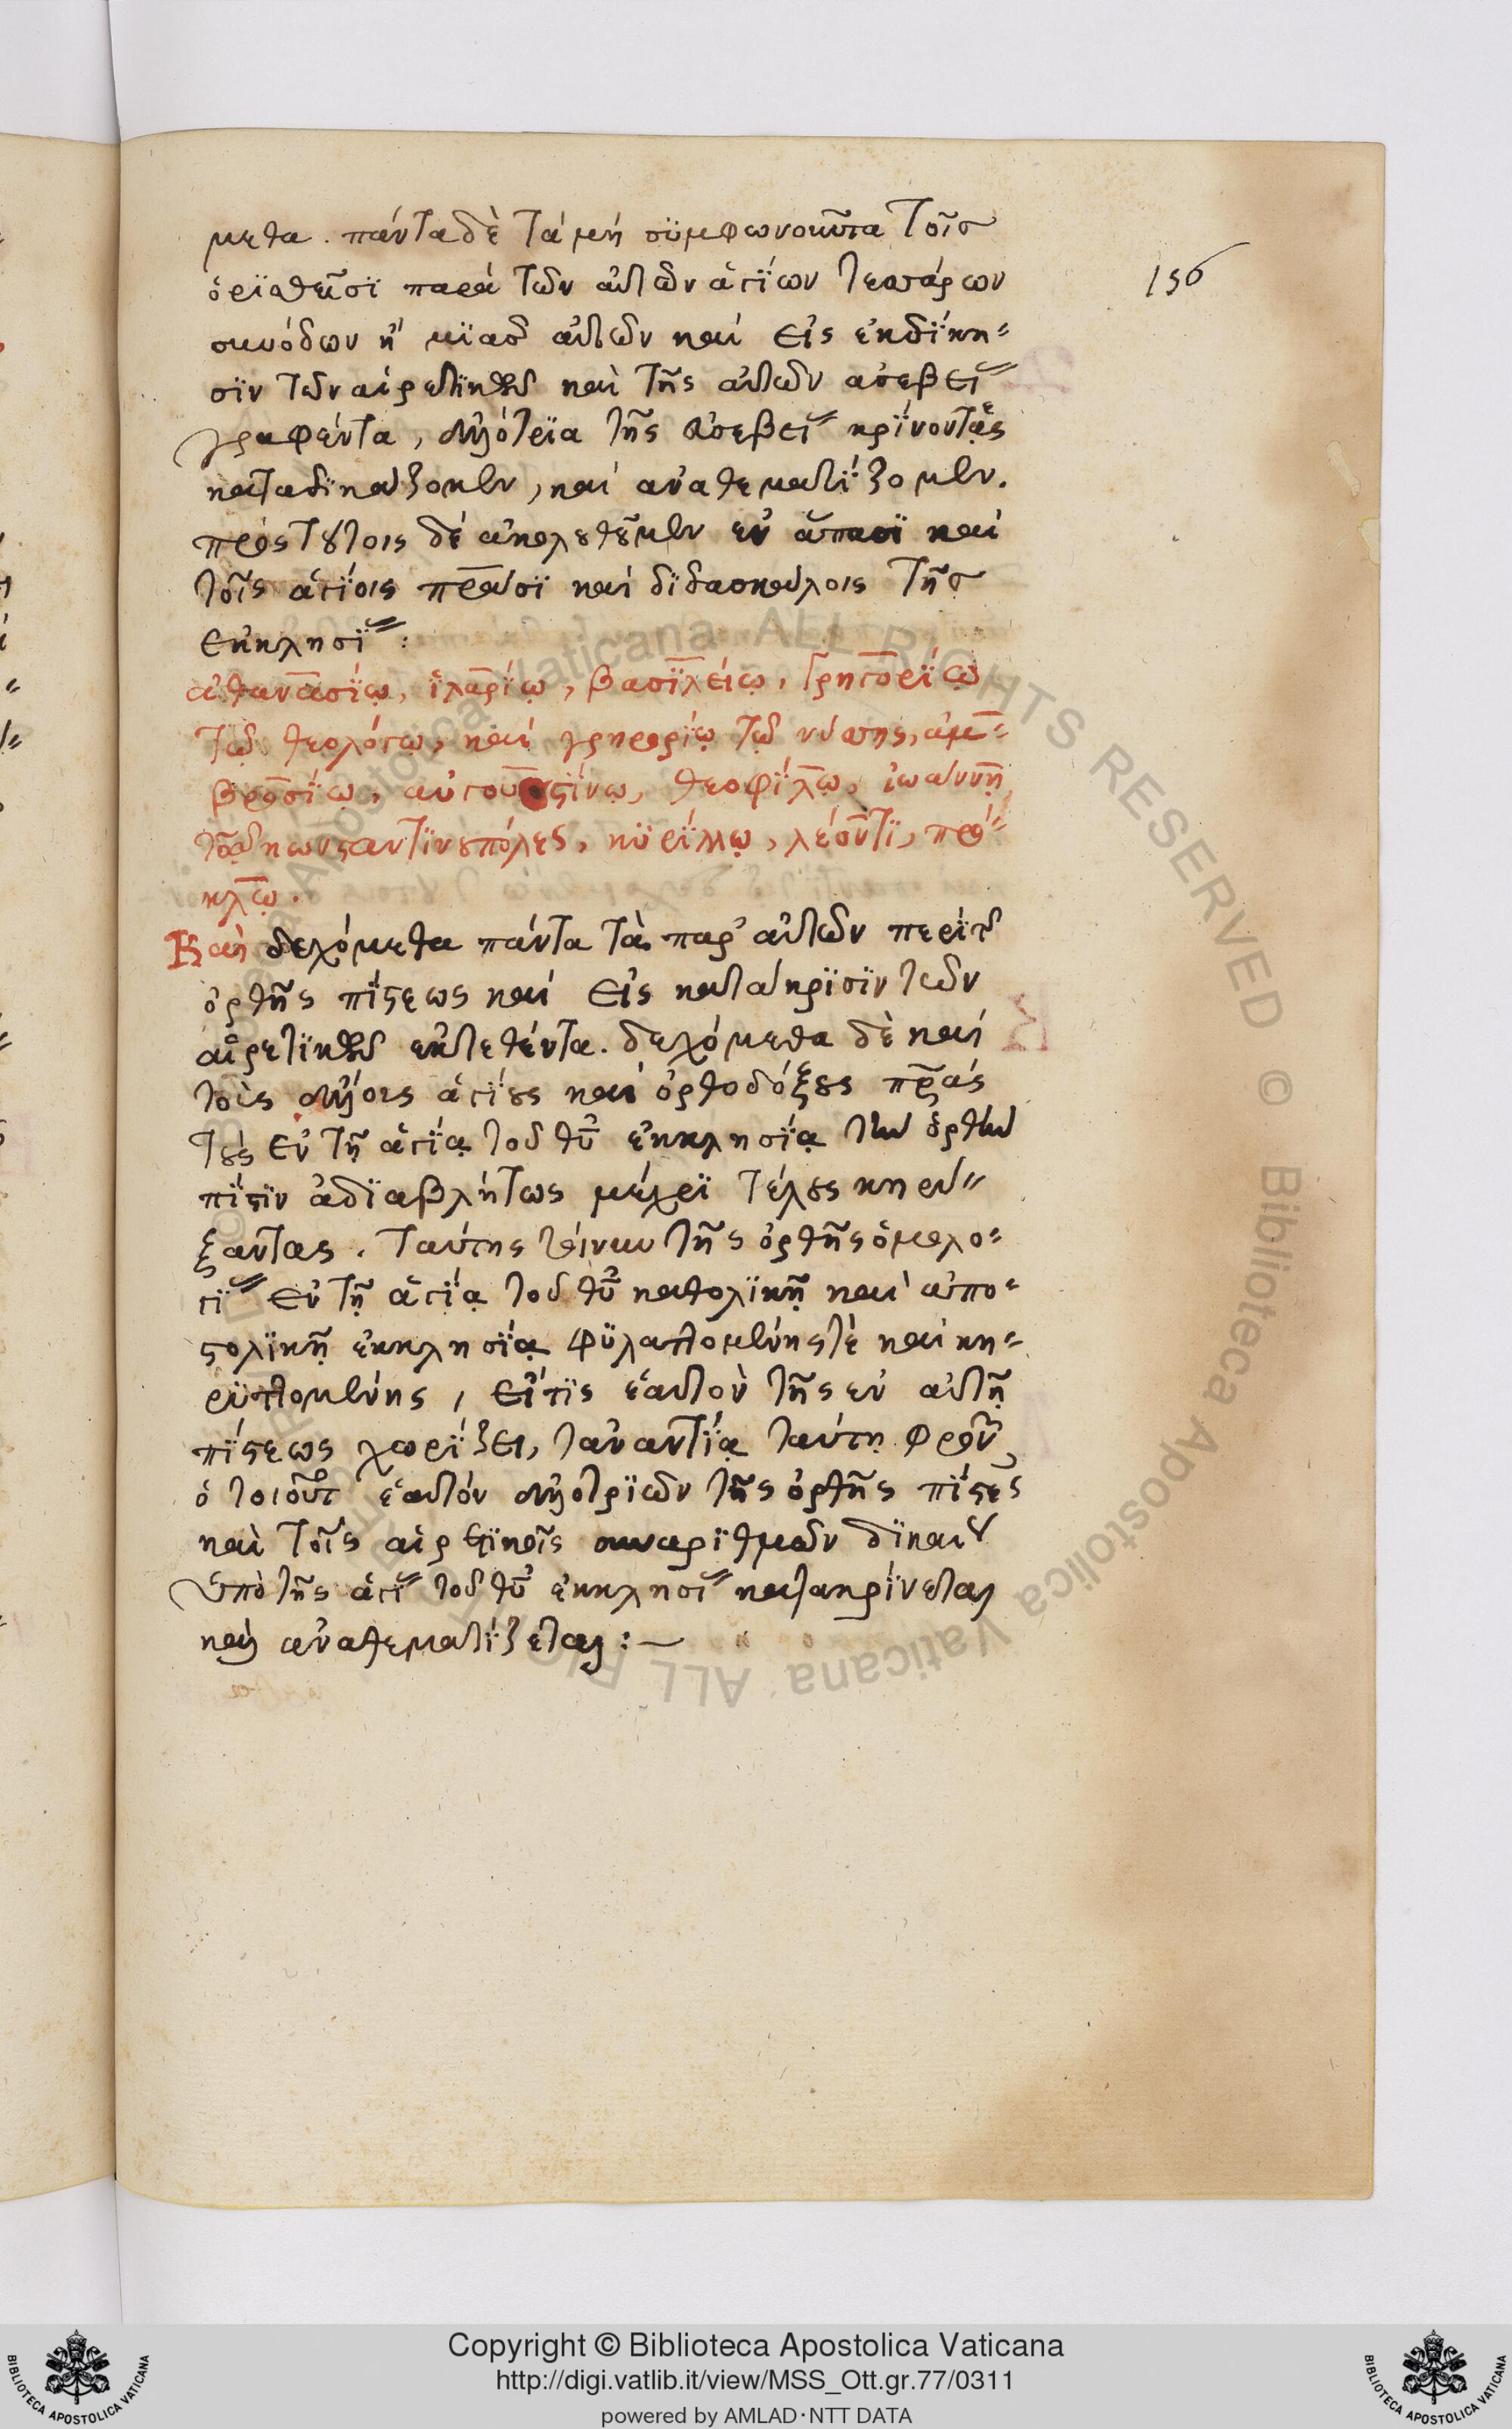 μεθα. πάντα δὲ τὰ μὴ σϋμφωνοῦντα τοῖσ
156
ὁρϊσθεῖσϊ παρὰ τῶν αὐτῶν ἁγίων τεσσάρων
συνόδων ἢ μϊᾶσ αὐτῶν καὶ εἰς ἐκδίκη=
σϊν τῶν αἱρετϊκῶν καὶ τῆς αὐτῶν ἀσεβεί
γραφέντα, ἀλλότρϊα τῆς εὐσεβεί κρίνοντες
καταδϊκάζομεν, καὶ ἀναθεματίζομεν.
πρὸς τούτοις δὲ ἀκολουθοῦμεν ἐν ἅπασϊ καὶ
τοῖς ἁγίοις πρ̅άσϊ καὶ δϊδασκάλοις τῆσ
ἐκκλησϊ:
ἀθανασίῳ, ἱλαρίῳ, βασϊλείῳ, γρηγορίῳ
τῷ θεολόγῳ, καὶ γρηγορίῳ τῷ νύσης, ἀμ=
βροσίῳ, αὐγουστίνῳ, θεοφίλῳ, ἰωάννῃ
τῷ κωνσταντϊνουπόλες, κϋρίλλῳ, λέοντϊ, πρό=
κλῳ.
Καὶ δεχόμεθα πάντα τὰ παρ' αὐτῶν περὶ τ
ὀρθῆς πίστεως καὶ εἰς κατάκρϊσϊν τῶν
αἱρετϊκῶν ἐκτεθέντα. δεχόμεθα δὲ καὶ
τοὺς ἄλλους ἁγίους καὶ ὀρθοδόξους πρ̅ας
τοὺς ἐν τῇ ἁγίᾳ τοῦ θυ̅ ἐκκλησίᾳ τὴν ὀρθὴν
πίστϊν ἀδϊαβλήτως μέχρϊ τέλους κηρύ=
ξαντας. ταύτης τοίνυν τῆς ὀρθῆς ὁμολο=
γϊ ἐν τῇ ἁγίᾳ τοῦ θυ̅ καθολϊκῇ καὶ ἀπο=
στολϊκῇ ἐκκλησίᾳ φϋλαττομένης τὲ καὶ κη=
ρϋττομένης, εἴ τϊς ἑαυτὸν τῆς ἐν αὐτῇ
πίστεως χωρίζει, τἀναντία ταύτῃ φρον
ὁ τοιοῦτ ἑαυτὸν ἀλλοτρϊῶν τῆς ὀρθῆς πίστες
καὶ τοῖς αἱρετϊκοῖς συναρϊθμῶν δϊκαί
ὑπὸ τῆς ἁγί τοῦ θυ̅ ἐκκλησί κατακρίνεται
καὶ ἀναθεματίζεται:—
Copyright © Biblioteca Apostolica Vaticana
http://digi.vatlib.it/view/MSS_Ott.gr.77/0311
powered by AMLAD·NTT DATA